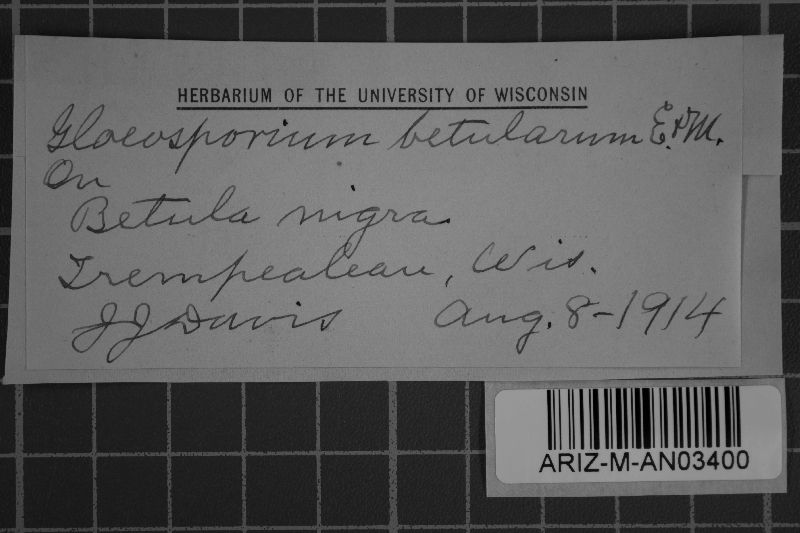 HERBARIUM OF THE UNIVERSITY OF WISCONSIN
Gloeosporium betularum E.&M.
On
Betula nigra.
Trempealeau, Wis.
JJ Davis Aug. 8-1914
ARIZ-M-AN03400